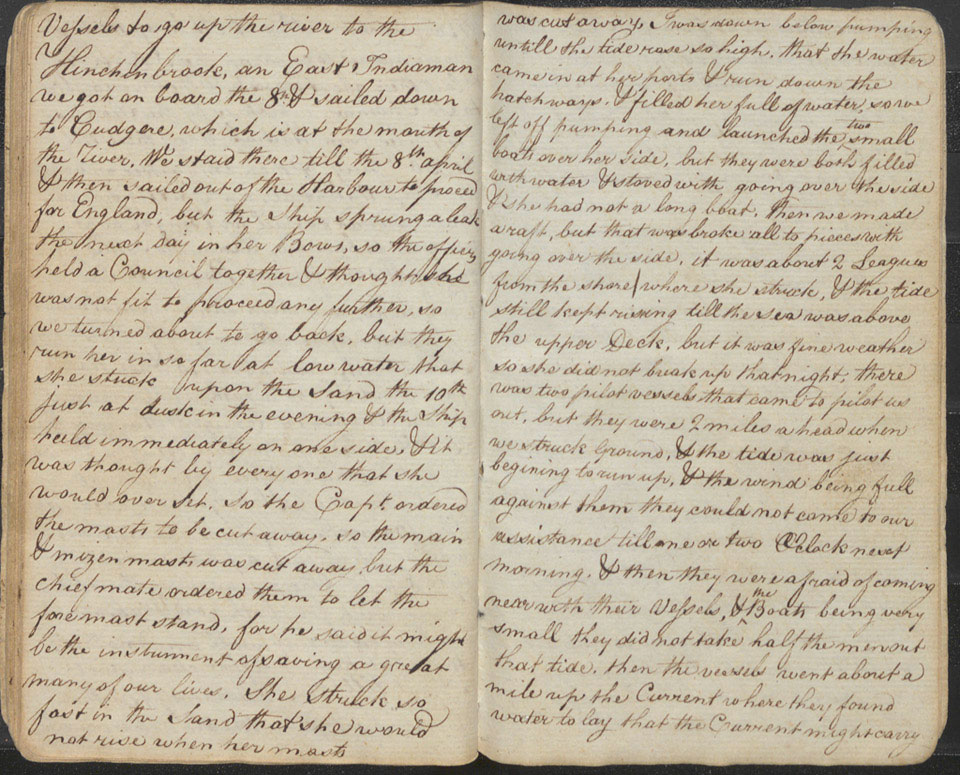 Vessels to go up the river to the
Hinchenbrook, an East Indiaman
we got on board the 8th & sailed down
to Cudgere, which is at the mouth of
the River. We staid there till the 8th april
& then sailed out of the Harbour to proceed
for England, but the Ship sprung a leak
the next day in her Bows, so the officers
held a Council together & thought she
was not fit to proceed any further, so
we turned about to go back, but they
run her in so far at low water that
she stuck upon the Sand the 10th
just at dusk in the evening & the Ship
heeld immediately on one side, & it
was thought by every one that she
would over set, so the Capt. ordered
the masts to be cut away, so the main
& mizen masts was cut away but the
chief mate ordered them to let the
fore mast stand, for he said it might
be the instrument of saving a great
many of our lives. She struck so
fast in the Sand that she would
not rise when her masts
was cut away, I was down below pumping
untill the tide rose so high, that the water
came in at her ports & run down the
hatchways, & filled her full of water, so we
left off pumping and launched the two small
boats over her side, but they were both filled
with water & stoved with going over the side
& she had not a long boat. Then we made
a raft, but that was broke all to pieces with
going over the side, it was about 2 Leagues
from the shore where she struck, & the tide
still kept rising till the sea was above
the upper Deck, but it was fine weather
so she did not break up that night, there
was two pilot vessels that came to pilot us
out, but they were 2 miles a head when
we struck Ground, & the tide was just
begining to run up, & the wind being full
against them they could not come to our
assistance till one or two OClock next
morning, & then they were afraid of coming
near with their Vessels, & the Boats being very
small they did not take half the men out
that tide, then the vessels went about a
mile up the Current where they found
water to lay that the Current might carry